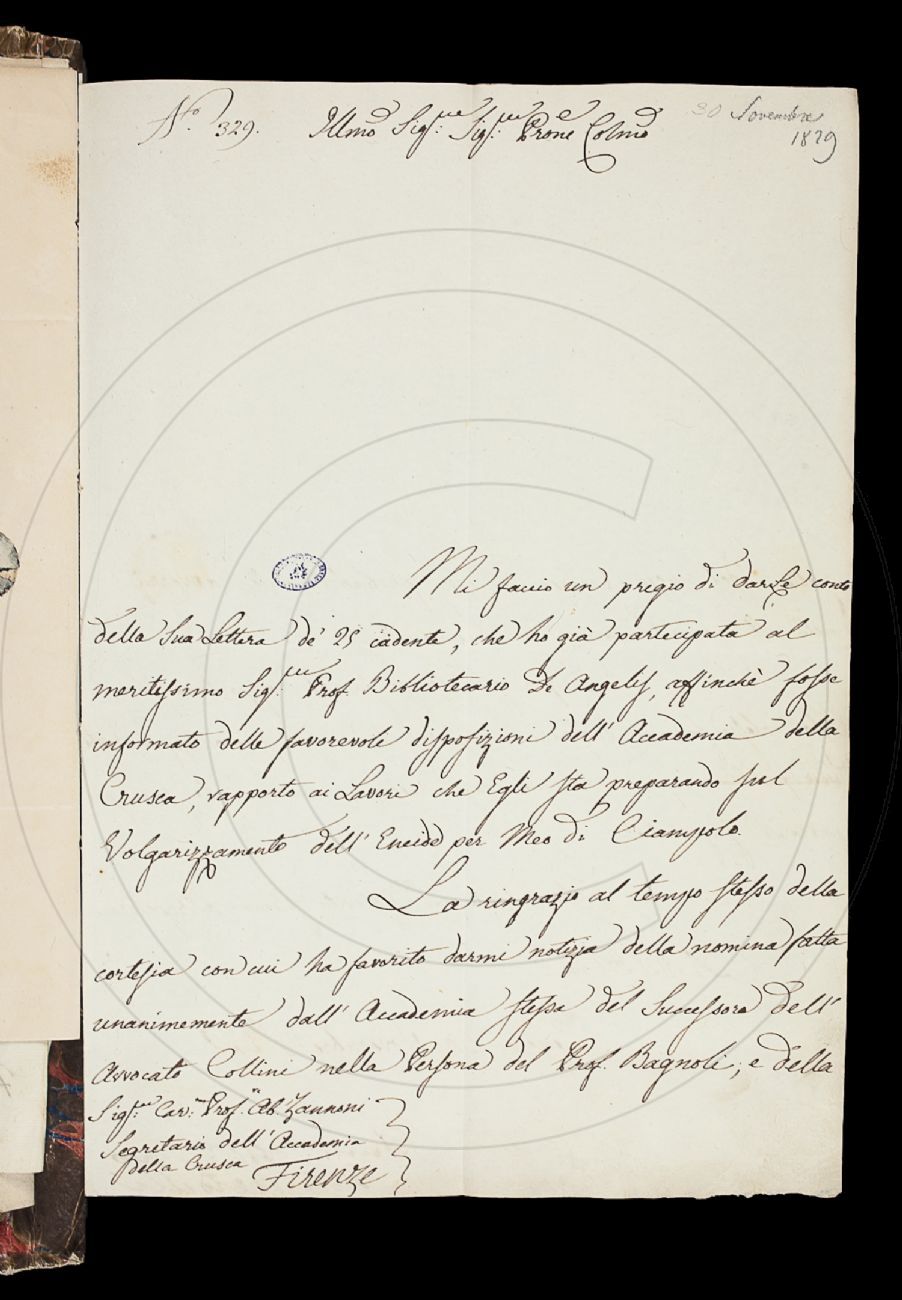 N.º 329.
Illmo Sig.re Sig.re Prone Colmo
30 Novembre
1829
Mi faccio un pregio di darLe conto
della Sua Lettera de' 25 cadente, che ho già partecipata al
meritissimo Sig.re Prof. Bibliotecario De Angelis, affinchè fosse
informato delle favorevoli disposizioni dell' Accademia della
Crusca, rapporto ai Lavori che Egli sta preparando sul
Volgarizzamento dell' Eneide per Meo di Ciampolo.
La ringrazio al tempo stesso della
cortesia con cui ha favorito darmi notizia della nomina fatta
unanimemente dall' Accademia stessa del Successore dell'
Avvocato Collini nella Persona del Prof. Bagnoli, e della
Sig.re Cav.re Prof.re Ab. Zannoni
Segretario dell' Accademia
della Crusca
Firenze